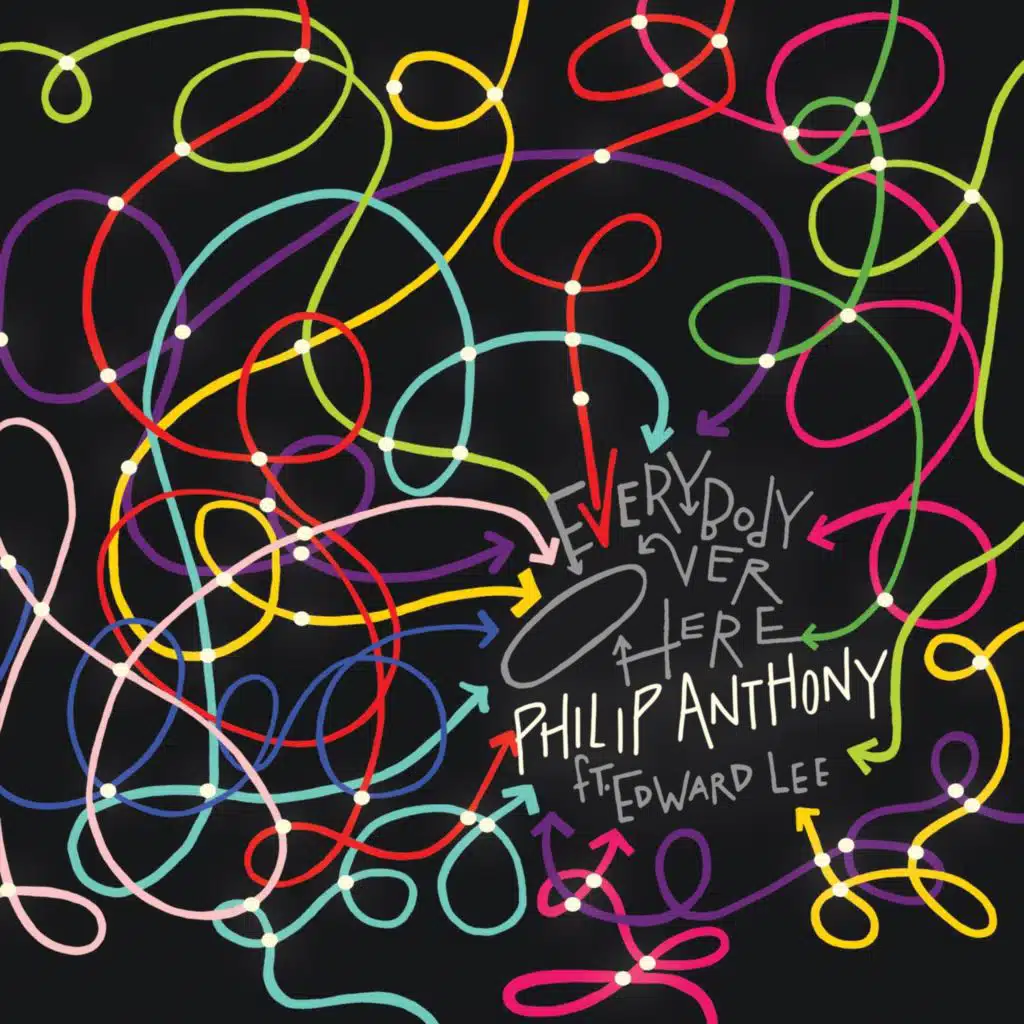 EVERYBODY
OVER
HERE
PHILIP ANTHONY
fT. EDWARD LEE